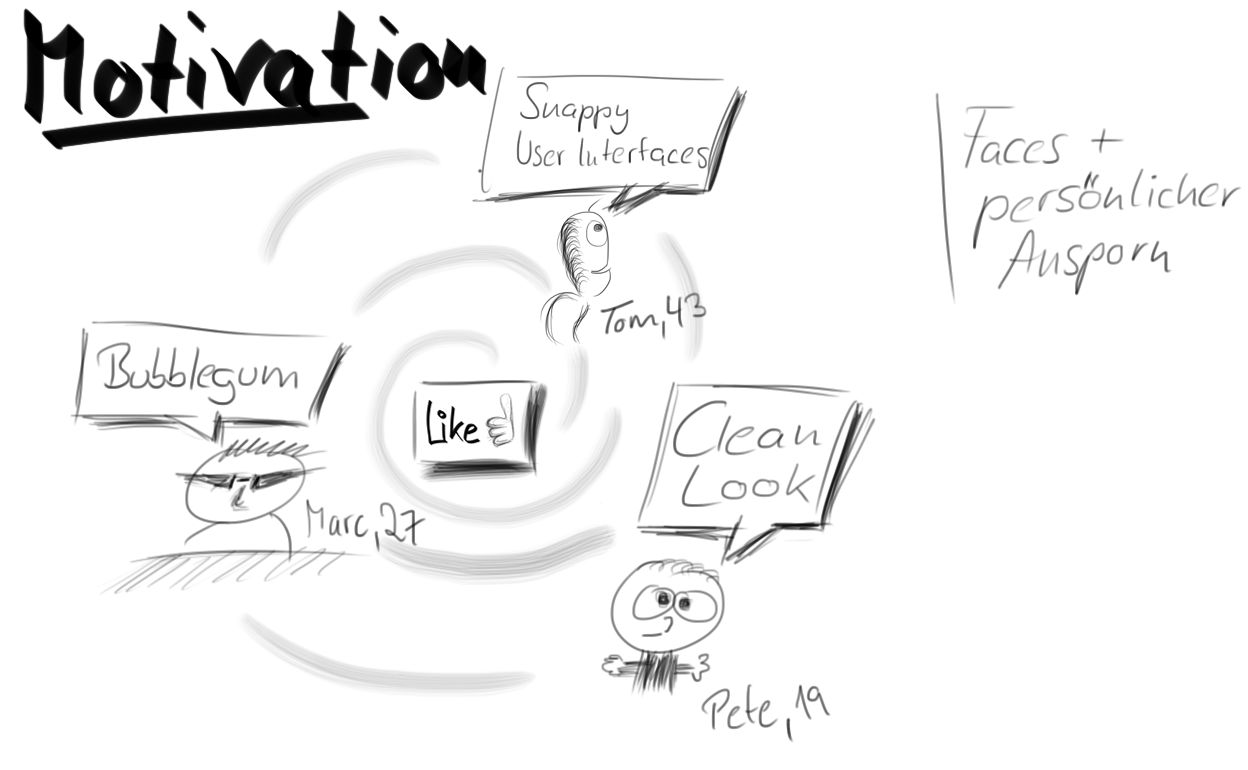 Motivation
Snappy
User Interfaces
Faces +
persönlicher
Ansporn
Tom, 43
Bubblegum
Like
Clean
Look
Marc, 27
Pete, 19